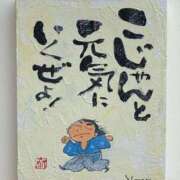 こじゃんと
元気に
いくぜよ!